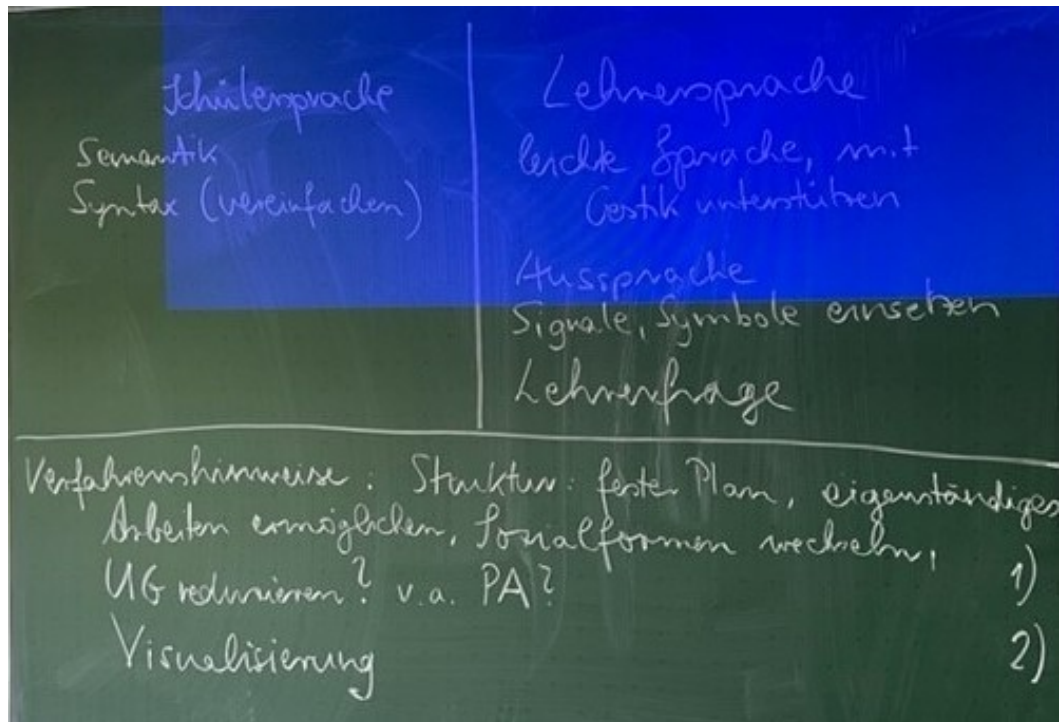 Schülersprache
Semantik
Syntax (vereinfachen)
Lehrersprache
leichte Sprache, mit
Gestik unterstützen
Aussprache
Signale, Symbole einsetzen
Lehrerfrage
Verfahrenshinweise: Struktur: fester Plan, eigenständiges
Arbeiten ermöglichen, Sozialformen wechseln,
UG reduzieren? v.a. PA? 1)
Visualisierung 2)